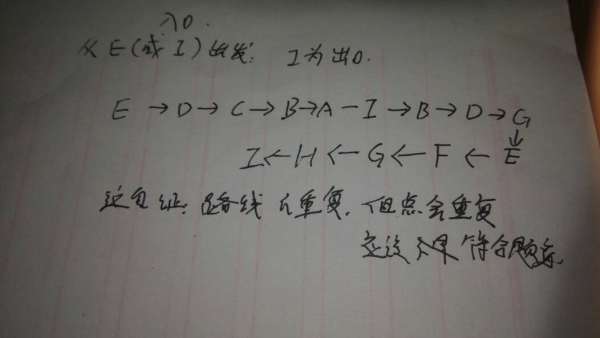 入口.
从E(或I)出发: I为出口.
E→D→C→B→A-I→B→D→G
↓
I←H←G←F←E
这包证:路线不重复.但点会重复
应该不是符合题意.